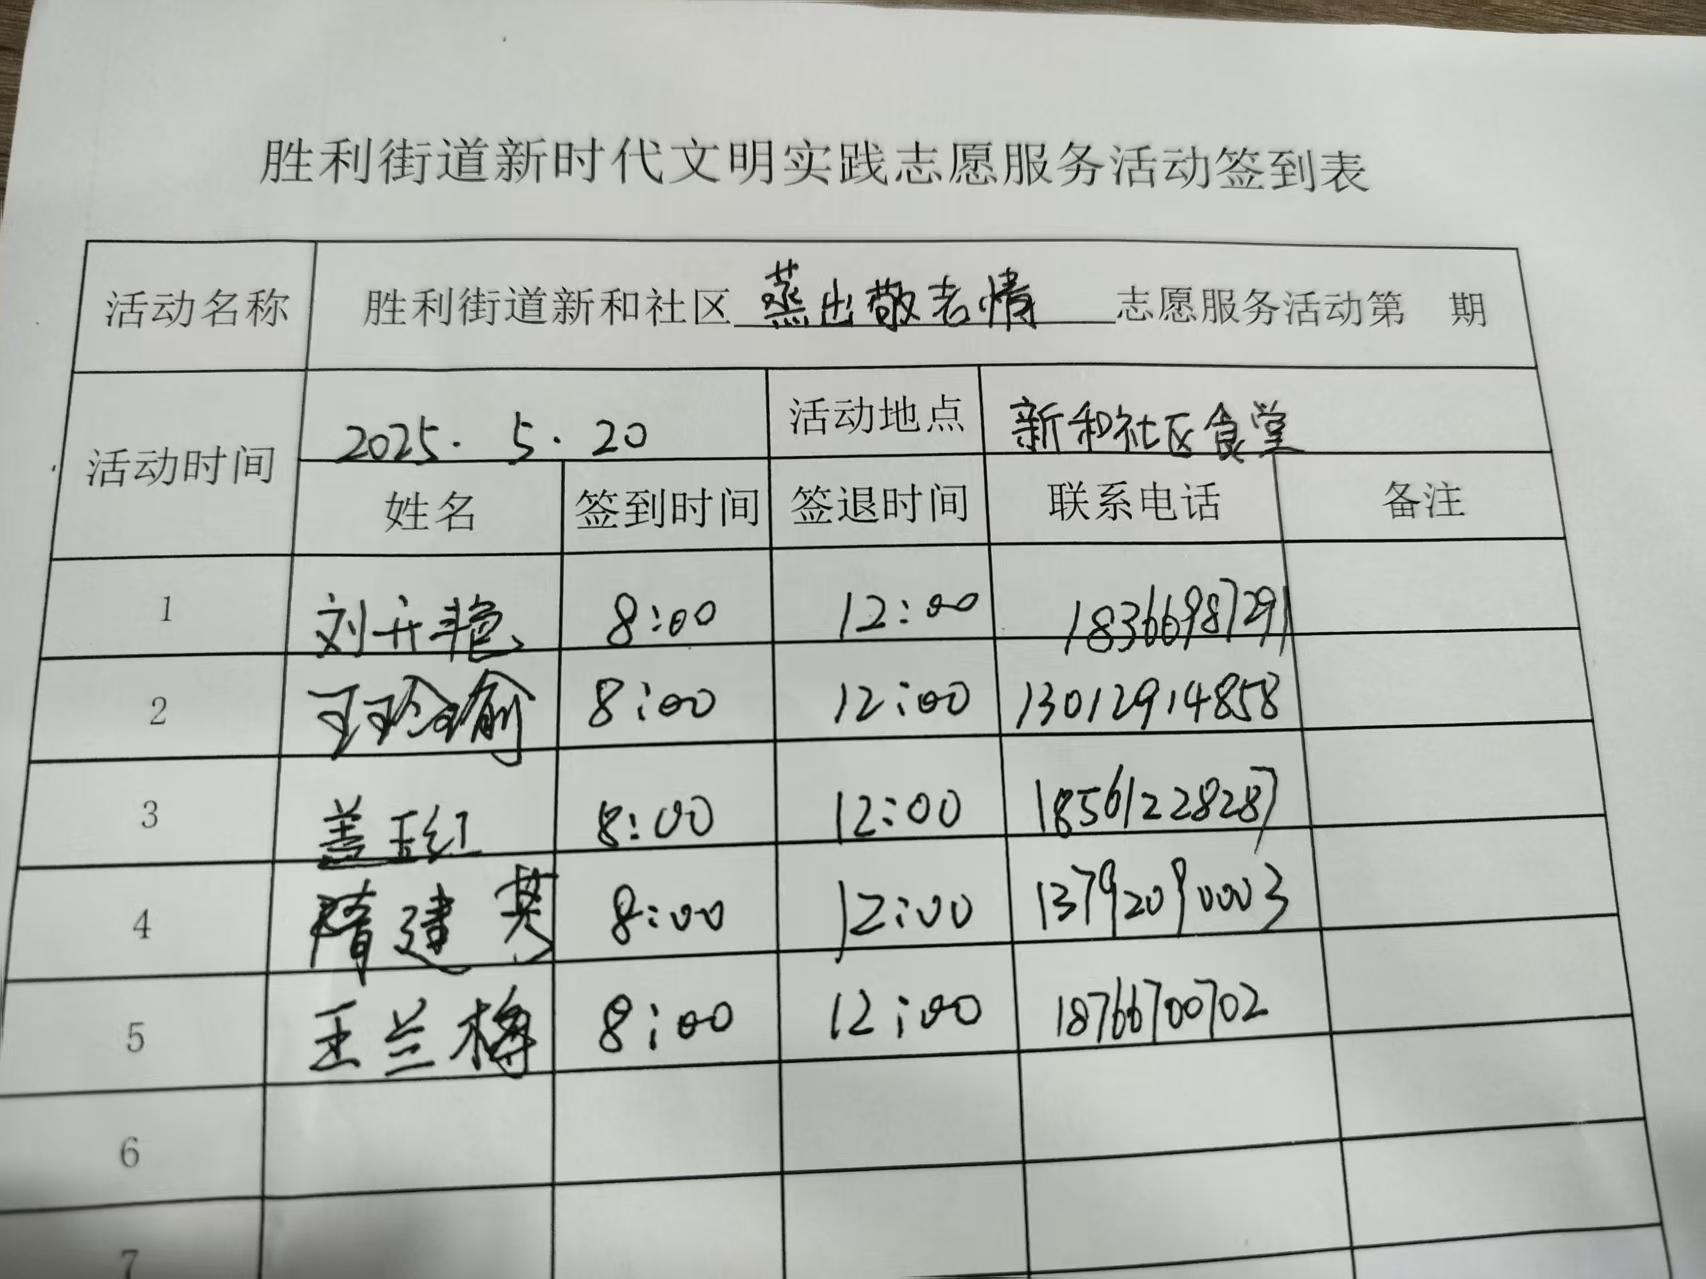 胜利街道新时代文明实践志愿服务活动签到表
活动名称 胜利街道新和社区蒸出敬老情志愿服务活动第 期
活动时间 2025.5.20 活动地点 新和社区食堂
姓名 签到时间 签退时间 联系电话 备注
1 刘开艳 8:00 12:00 18366987291
2 王玲瑜 8:00 12:00 13012914858
3 盖玉红 8:00 12:00 18561228287
4 隋建英 8:00 12:00 13792090003
5 王兰梅 8:00 12:00 18766700702
6
7